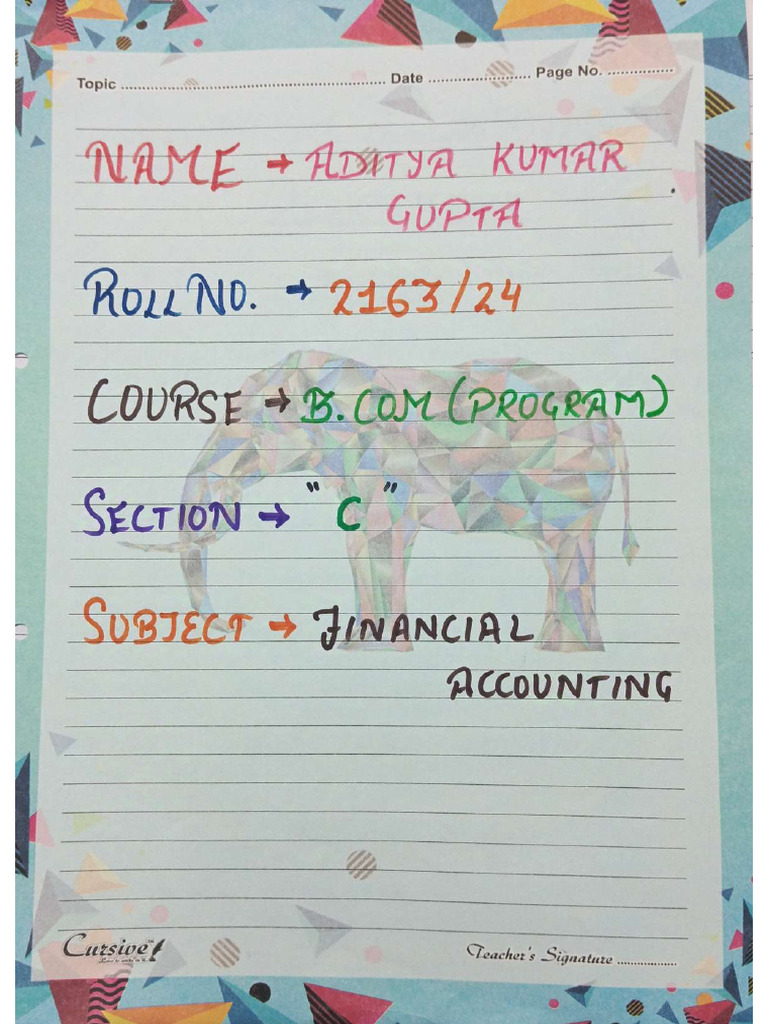 Topic ........................ Date .................... Page No. ...............
NAME → ADITYA KUMAR
GUPTA
ROLL NO. → 2163/24
COURSE → B.COM (PROGRAM)
SECTION → "C"
SUBJECT → FINANCIAL
ACCOUNTING
Cursive
Teacher's Signature ................